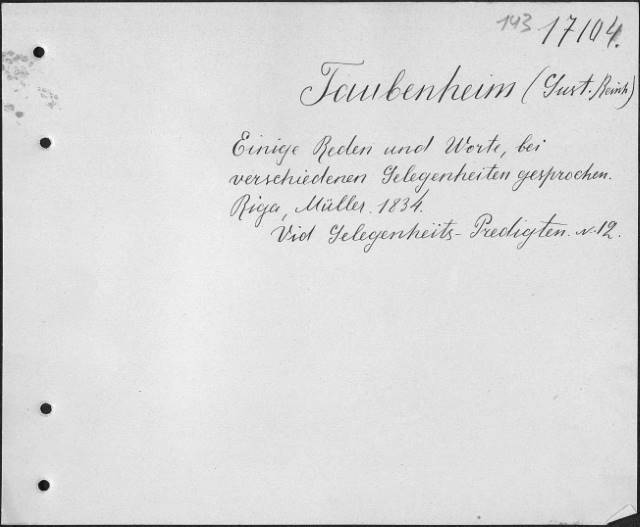 143 17104.
Taubenheim (Gust. Reinh)
Einige Reden und Worte, bei
verschiedenen Gelegenheiten gesprochen.
Riga, Müller. 1834.
Vid Gelegenheits-Predigten. N. 12.